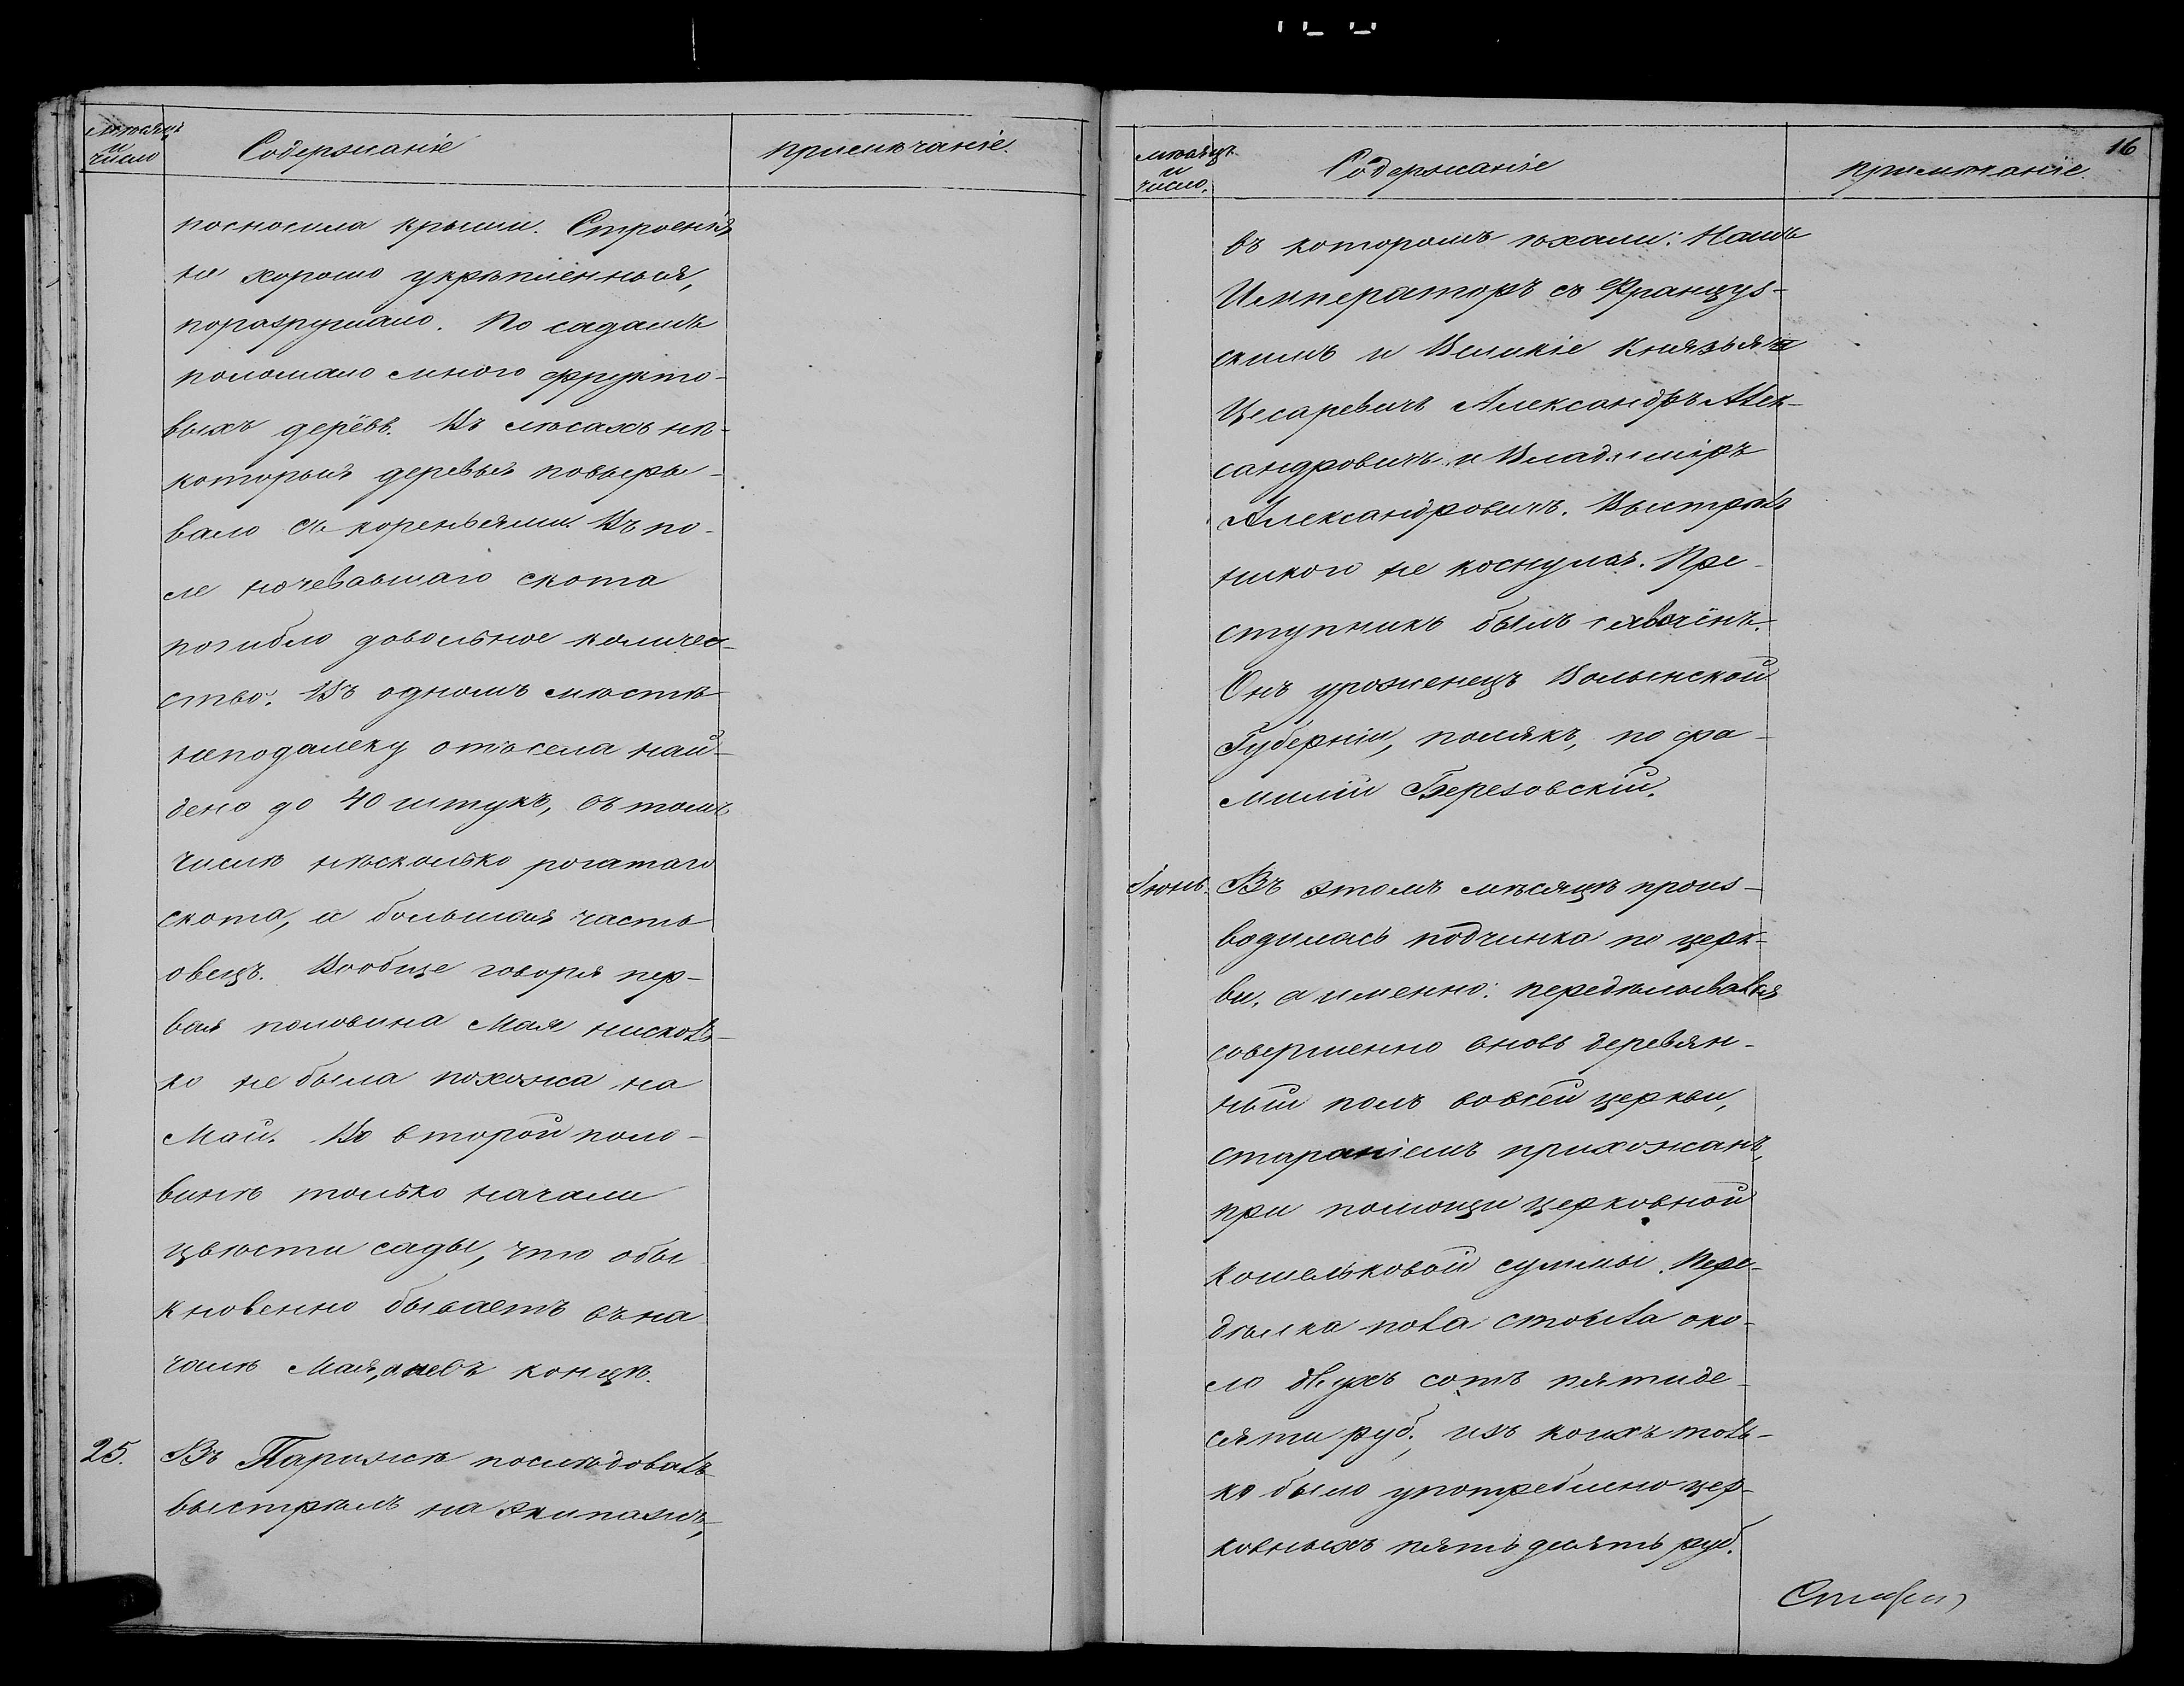 Мѣсяцъ
и
число
Содержаніе
примѣчаніе.
посносила крыши. Строенія
не хорошо укрѣпленныя,
поразрушало. По садамъ
поломало много фрукто-
выхъ дерёвъ. Въ лѣсахъ нѣ-
которыя деревья повыры-
вало съ кореньями. Въ по-
ле ночевавшаго скота
погибло довольное количес-
ство. Въ одномъ мѣстѣ
неподалеку отъ села най-
дено до 40 штукъ, въ томъ
числѣ нѣсколько рогатаго
скота, и большая часть
овецъ. Вообще говоря пер-
вая половина Мая нисколь-
ко не была похожа на
Май. Во второй поло-
винѣ только начали
цвѣсти сады, что обы
кновенно бываетъ въ на
чалѣ Мая, а не въ концѣ.
25. Въ Парижѣ послѣдовалъ
выстрѣлъ на экипажъ,
16
мѣсяцъ
и
число.
Содержаніе
примѣчаніе.
въ которомъ ѣхали: Нашъ
Императоръ съ Француз-
скимъ и Великіе Князья
Цесаревичъ Александръ Алек-
сандровичъ и Владиміръ
Александровичъ. Выстрѣлъ
никого не коснулся. Пре-
ступникъ былъ схвачёнъ.
Онъ уроженецъ Волынской
Губерніи, полякъ, по фа-
миліи Березовскій.
Іюнь. Въ этомъ мѣсяцѣ произ-
водилась подчинка по церк-
ви, а именно: передѣлывался
совершенно вновь деревян-
ный полъ вовсей церкви,
стараніемъ прихожанъ,
при помощи церковной
кошельковой суммы. Пере-
дѣлка пола стоила око-
ло двухъ сотъ пятиде-
сяти руб., изъ коихъ толь-
ко было употреблено цер-
ковныхъ пятьдесять руб.